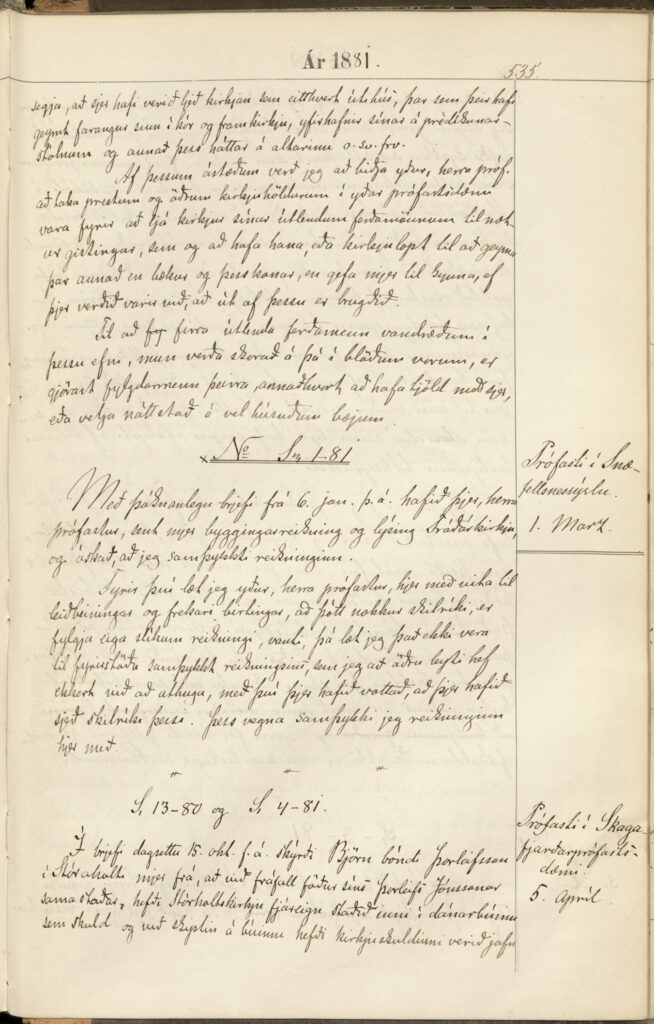 Ár 1881.
535
segja, að sjer hafi verið ljeð kirkjan sem eitthvert útihús, þar sem þeir hafi
geymt farangur sinn í kór og framkirkju, yfirhafnir sínar á prédikunar-
stólnum og annað þess háttar á altarinu o. sv. frv.
Af þessum ástæðum verð jeg að biðja yður, herra próf.
að taka prestum og öðrum kirkjuhöldurum í yðar prófastsdæmi
vara fyrir að ljá kirkjur sínar útlendum ferðamönnum til næt-
urgistingar, sem og að hafa hana, eða kirkjulopt til að geyma
þar annað en bækur og þess konar, en gefa mjer til kynna, ef
þjer verðið varir við, að út af þessu er brugðið.
Til að firra útlenda ferðamenn vandræðum í
þessu efni, mun verða skorað á þá í blöðum vorum, er
gjörast fylgdarmenn þeirra, annaðhvort að hafa tjöld með sjer,
eða velja náttstað á vel húsuðum bæjum.
No S. 1-81
Prófasti í Snæ-
fellsnessýslu.
1. Marz.
Með þóknanlegu brjefi frá 6. jan. þ. á. hafið þjer, herra
prófastur, sent mjer byggingarreikning og lýsing Fróðárkirkju,
og óskað, að jeg samþykkti reikninginn.
Fyrir því læt jeg yður, herra prófastur, hjer með vita til
leiðbeiningar og frekari birtingar, að þótt nokkur skilríki, er
fylgja eiga slíkum reikningi, vanti, þá læt jeg það ekki vera
til fyrirstöðu samþykkt reikningsins, sem jeg að öðru leyti hef
ekkert við að athuga, með því þjer hafið vottað, að þjer hafið
sjeð skilríki þessi. Þess vegna samþykki jeg reikninginn
hjer með.
" " "
S. 13-80 og S. 4-81.
Prófasti í Skaga-
fjarðarprófasts-
dæmi.
5. Apríl.
Í brjefi dagsettu 15. okt. f. á. skýrði Björn bóndi Þorleifsson
í Stóraholti mjer frá, að við fráfall föður síns Þorleifs Jónssonar
sama staðar, hefði Stórholtskirkju fjáreign staðið inni í dánarbúinu
sem skuld og við skiptin á búinu hefði kirkjuskuldinni verið jafn